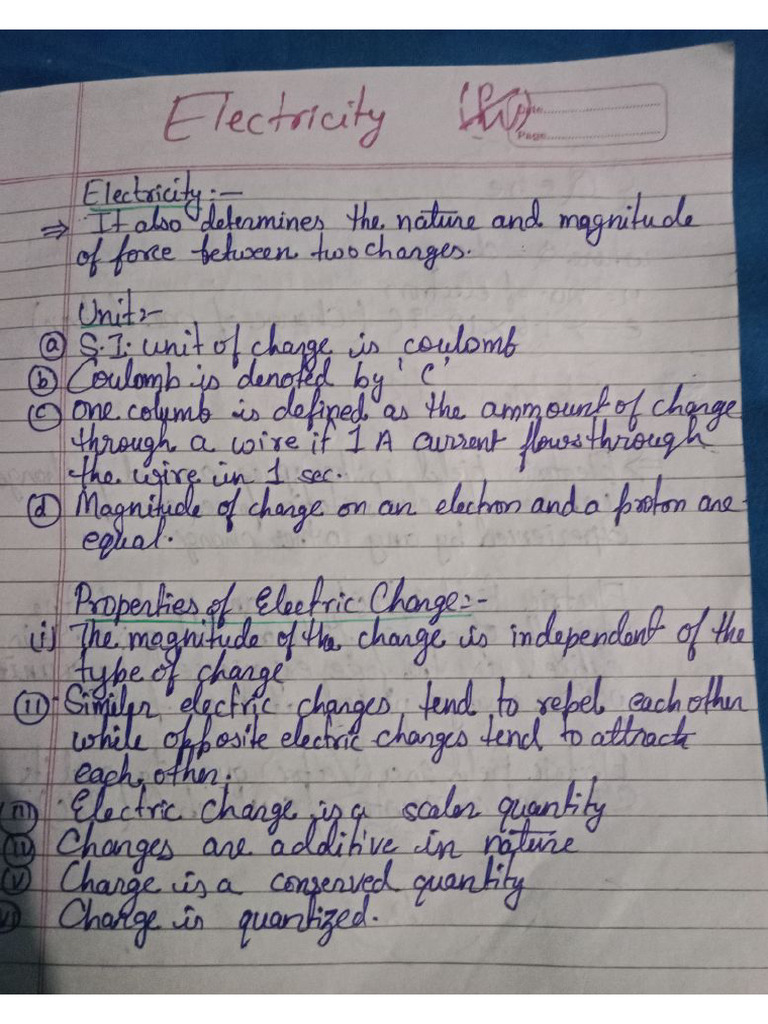 Electricity
Date
Page
Electricity:-
⇒ It also determines the nature and magnitude
of force between two charges.
Unit:-
(a) S.I. unit of charge is coulomb
(b) Coulomb is denoted by 'C'
(c) One columb is defined as the ammount of charge
through a wire if 1 A current flows through
the wire in 1 sec.
(d) Magnitude of charge on an electron and a proton are
equal.
Properties of Electric Charge:-
(i) The magnitude of the charge is independent of the
type of charge
(ii) Similer electric charges tend to repel each other
while opposite electric charges tend to attract
each other.
(iii) Electric charge is a scaler quantity
(iv) Charges are additive in nature
(v) Charge is a conserved quantity
(vi) Charge is quantized.